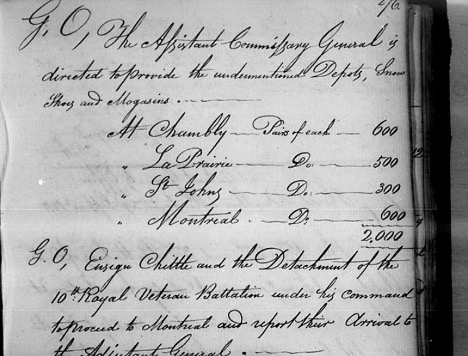 2/6.
G. O, The Assistant Commissary General is
directed to provide the undermentioned Depots, Snow
Shoes and Mogasins. —
At Chambly — Pairs of each — 600
" La Prairie — Do. — 500
" St. Johns — Do. — 300
" Montréal — Do. — 600
2,000
G. O, Ensign and the Detachment of the
10th. Royal Veteran Battalion under his command
to proceed to Montreal and report their Arrival to
the Adjutant General. —